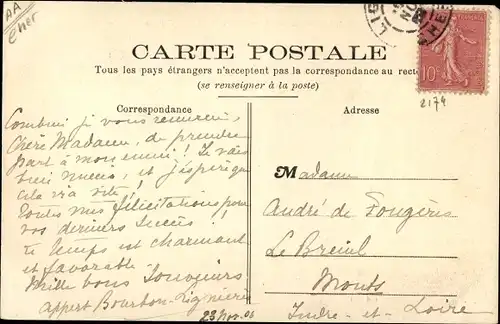 AA
Cher
CARTE POSTALE
Tous les pays étrangers n'acceptent pas la correspondance au recto
(se renseigner à la poste)
Correspondance
Combien je vous remercie,
Chère Madame, de prendre
part à mon ennui! Je vais
bien mieux, et j'espère que
cela ira vite!
Toutes mes félicitations pour
vos derniers succès!
Le temps est charmant
et favorable.
Mille bons Souvenirs
Appert Bourbon-Lignières
23 Nov. 06
Adresse
Madame
André de Fougères
Le Breuil
Monts
Indre-et-Loire
10
2174